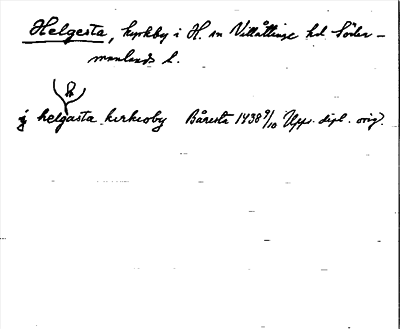 Helgesta, kyrkby i H. sn Villåttinge hd Söder-
manlands l.
j helgasta kirkioby Bäresta 1438 9/10 Upps. dipl. orig.